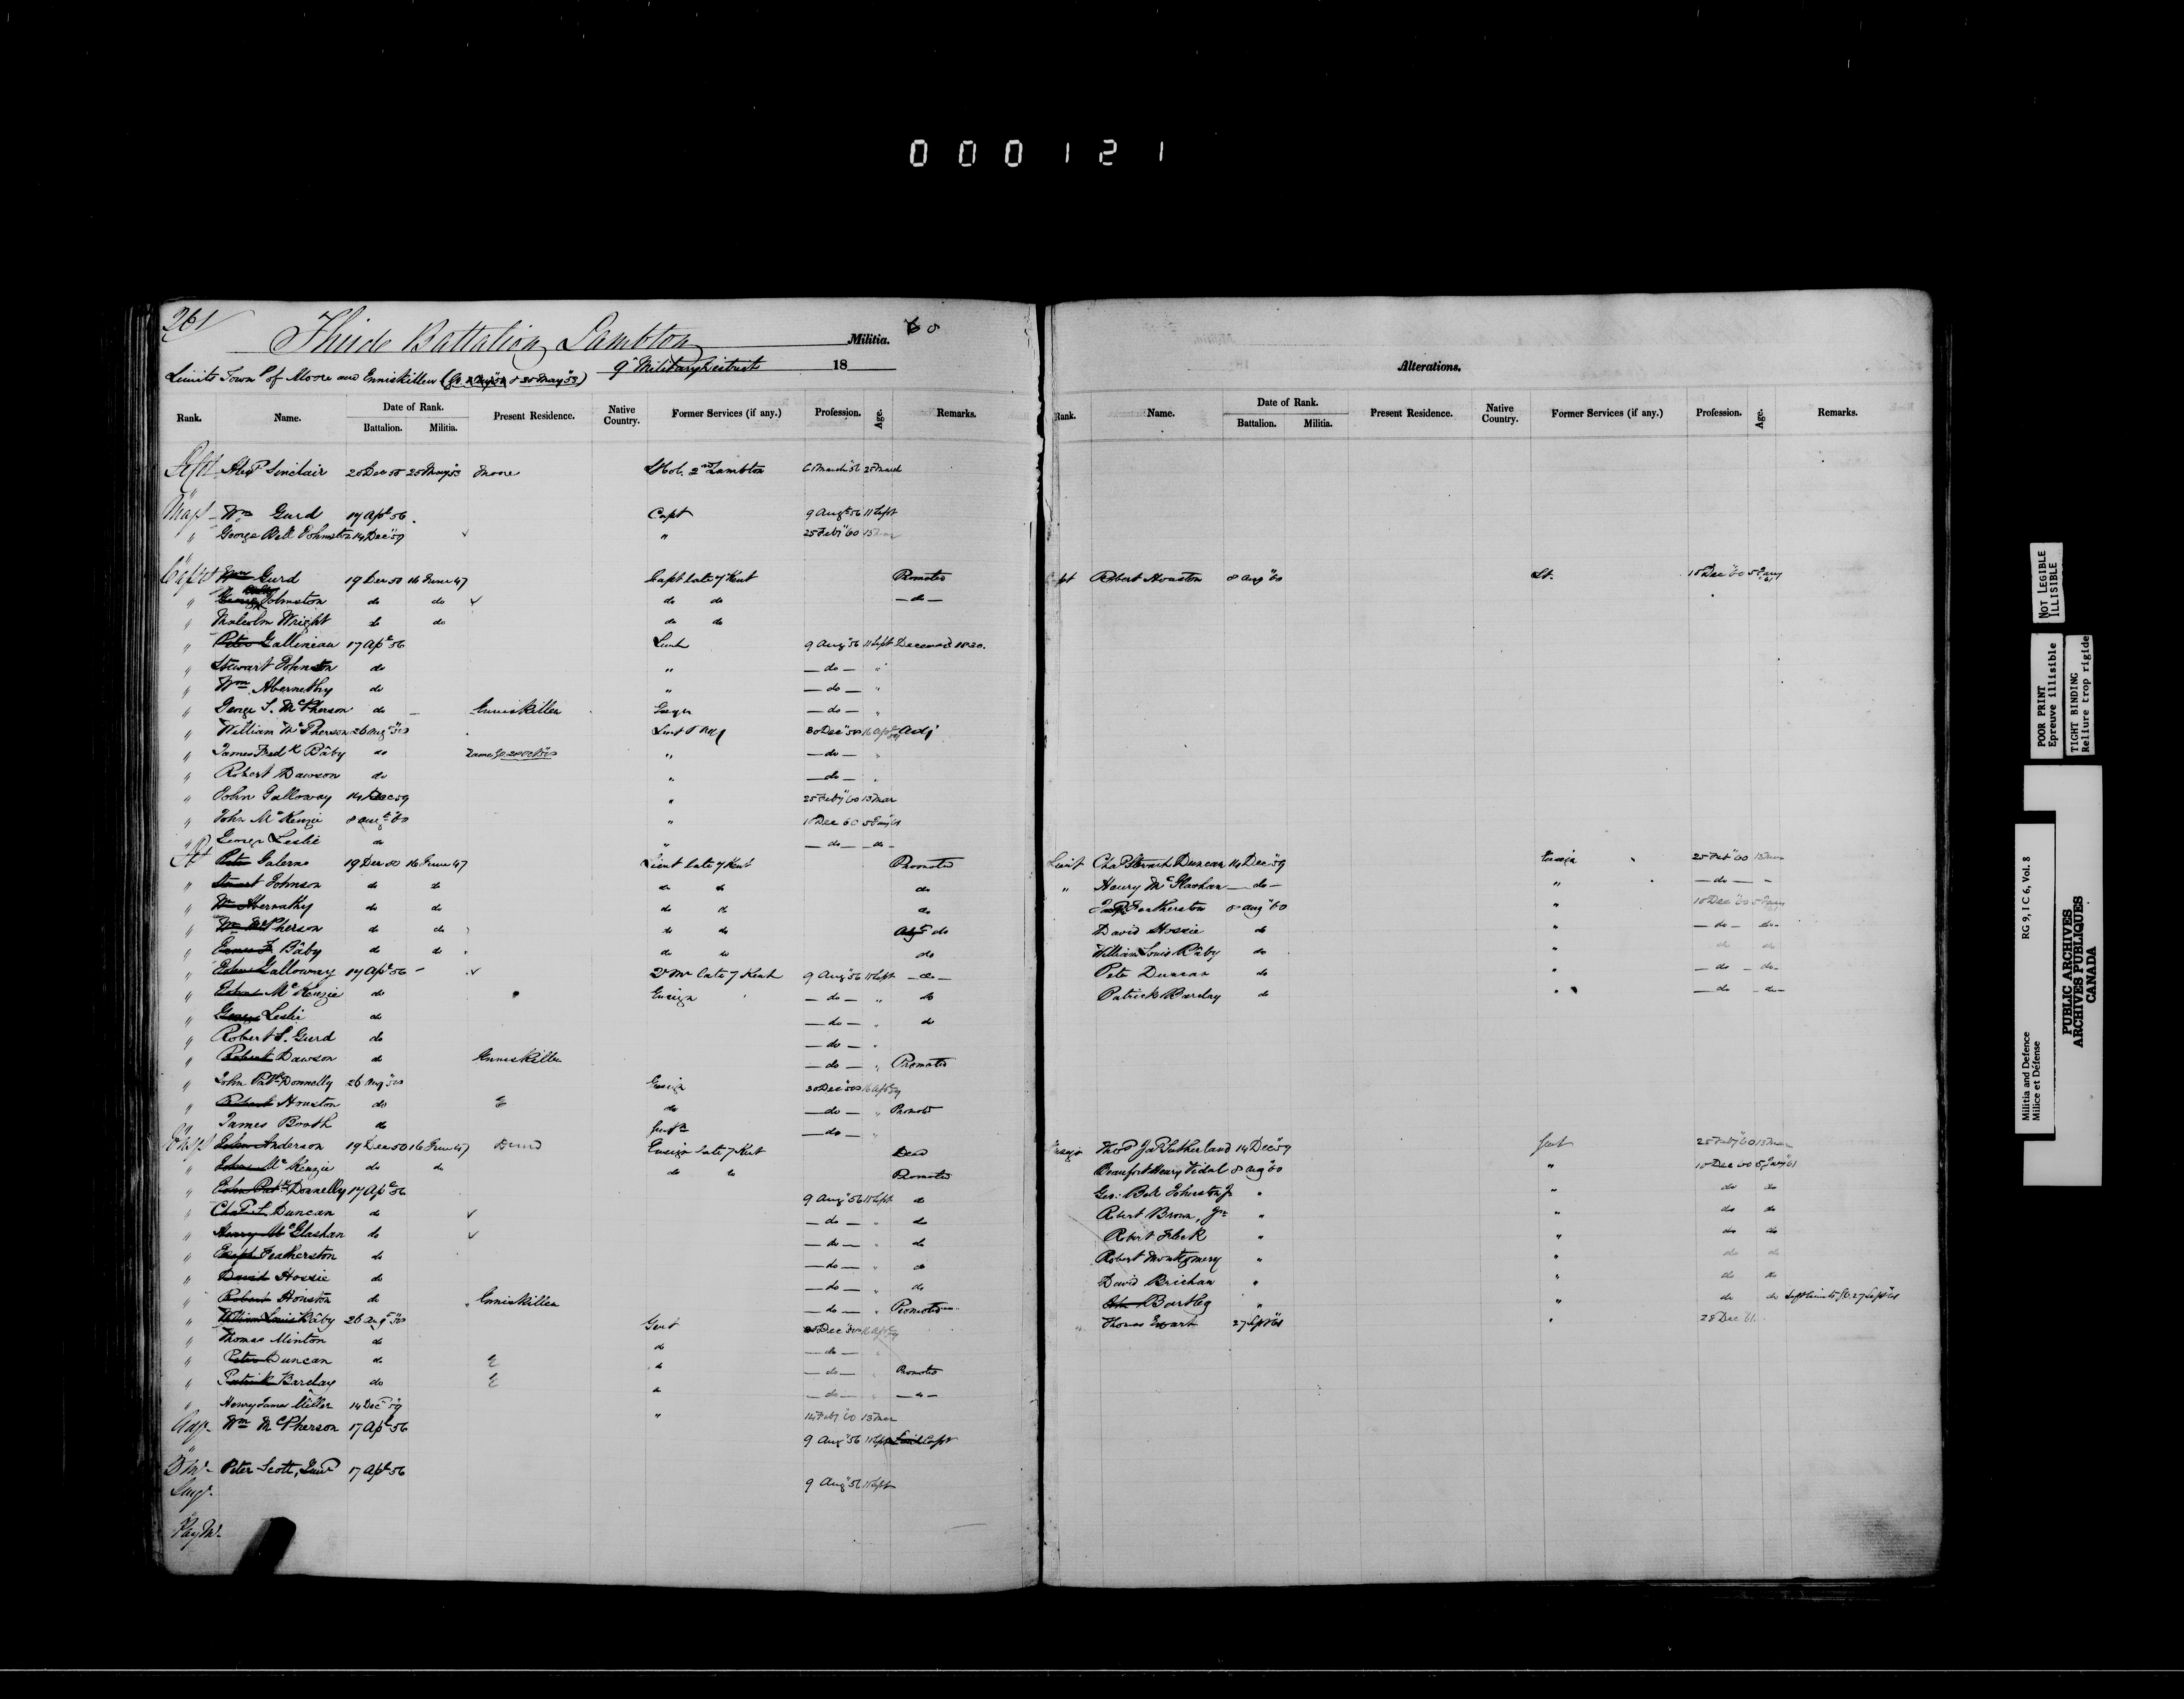 000121
261
Third Battalion, Lambton Militia.
9th Military District 18
Limits Townps of Moore and Enniskillen
Rank. Name. Date of Rank. Battalion. Militia. Present Residence. Native Country. Former Services (if any.) Profession. Age. Remarks.
Alexr Sinclair 20 Dec 55 Moore 2nd Lambton
Majr Wm Gurd 17 Apl 56 Capt 9 Augt 56 11 Sept
" George Bell Johnston 14 Dec 59 " 25 Feby 60 13 Mar
Capts Wm Gurd 19 Dec 50 16 June 47 Capt late 7 Kent Promoted
" Johnston do do do do do
" Malcolm Wright do do do do
" Peter Gallinian 17 Apl 56 Lieut 9 Aug 56 11 Sept Deceased
" Stewart Johnston do " do "
" Wm Abernethy do " do "
" George S. McPherson do Enniskillen do "
" William McPherson 26 Aug 58 Lieut & Adj 30 Dec 58 Adj
" James Fredk Bâby do " do "
" Robert Dawson do " do "
" John Galloway 14 Dec 59 " 25 Feby 60 13 Mar
" John McKenzie 8 Aug 60 " 10 Dec 60
" George Leslie do " do do
Lt Peter Galerno 19 Dec 50 16 June 47 Lieut late 7 Kent Promoted
" Stewart Johnson do do do do do
" Wm Abernathy do do do do do
" Wm McPherson do do do do do
" James F. Bâby do do do do do
" John Galloway 17 Apl 56 Qr Mr late 7 Kent 9 Aug 56 11 Sept do
" John McKenzie do Ensign do " do
" George Leslie do do " do
" Robert S. Gurd do do "
" Robert Dawson do Enniskillen do " Promoted
" John Patk Donnelly 26 Aug 58 Ensign 30 Dec 58
" Robert Houston do E do do " Promoted
" James Booth do do "
Ensgs John Anderson 19 Dec 50 16 June 47 Dead Ensign late 7 Kent Dead
" John McKenzie do do do do Promoted
" John Patk Donnelly 17 Apl 56 9 Aug 56 11 Sept do
" Chas S. Duncan do do " do
" Henry McGlashan do do " do
" Joseph Featherston do do " do
" David Hossie do do " do
" Robert Houston do Enniskillen do " Promoted
" William Louis Bâby 26 Aug 58 Gent
" Thomas Minton do do do
" Peter Duncan do E do do Promoted
" Patrick Barclay do E do do do
" Henry James Miller 14 Dec 59 " 14 Feby 60 13 Mar
Adjt Wm McPherson 17 Apl 56 9 Aug 56 11 Sept Capt
Q Mr Peter Scott, 17 Apl 56 9 Aug 56 11 Sept
Surgn
Pay Mr
Alterations.
Rank. Name. Date of Rank. Battalion. Militia. Present Residence. Native Country. Former Services (if any.) Profession. Age. Remarks.
Capt Robert Houston 8 Aug 60 Lt. 10 Dec 60
Lieut Chas Stewart Duncan 14 Dec 59 Ensign 25 Feb 60 13 Mar
" Henry McGlashan do " do
Featherston 8 Aug 60 " 10 Dec 60
David Hossie do " do do
William Louis Bâby do do do
Peter Duncan do " do do
Patrick Barclay do " do do
Ensign Thos Jas Sutherland 14 Dec 59 Gent 25 Feby 60 13 Mar
Beaufort Henry Vidal 8 Aug 60 " 10 Dec 60
Geo: Bell Johnston Jr " " do do
Robert Brown, Jnr " " do do
Robert Fleck " " do do
Robert Montgomery " " do do
David Brichan " " do do
John Bartley " " do do Left limits GO. 27 Sept 61
" Thomas Ewart 27 Sept 61 " 28 Dec 61
NOT LEGIBLE
ILLISIBLE
POOR PRINT
Epreuve illisible
TIGHT BINDING
Reliure trop rigide
Militia and Defence
Milice et Défense
RG 9, I C 6, Vol. 8
PUBLIC ARCHIVES
ARCHIVES PUBLIQUES
CANADA